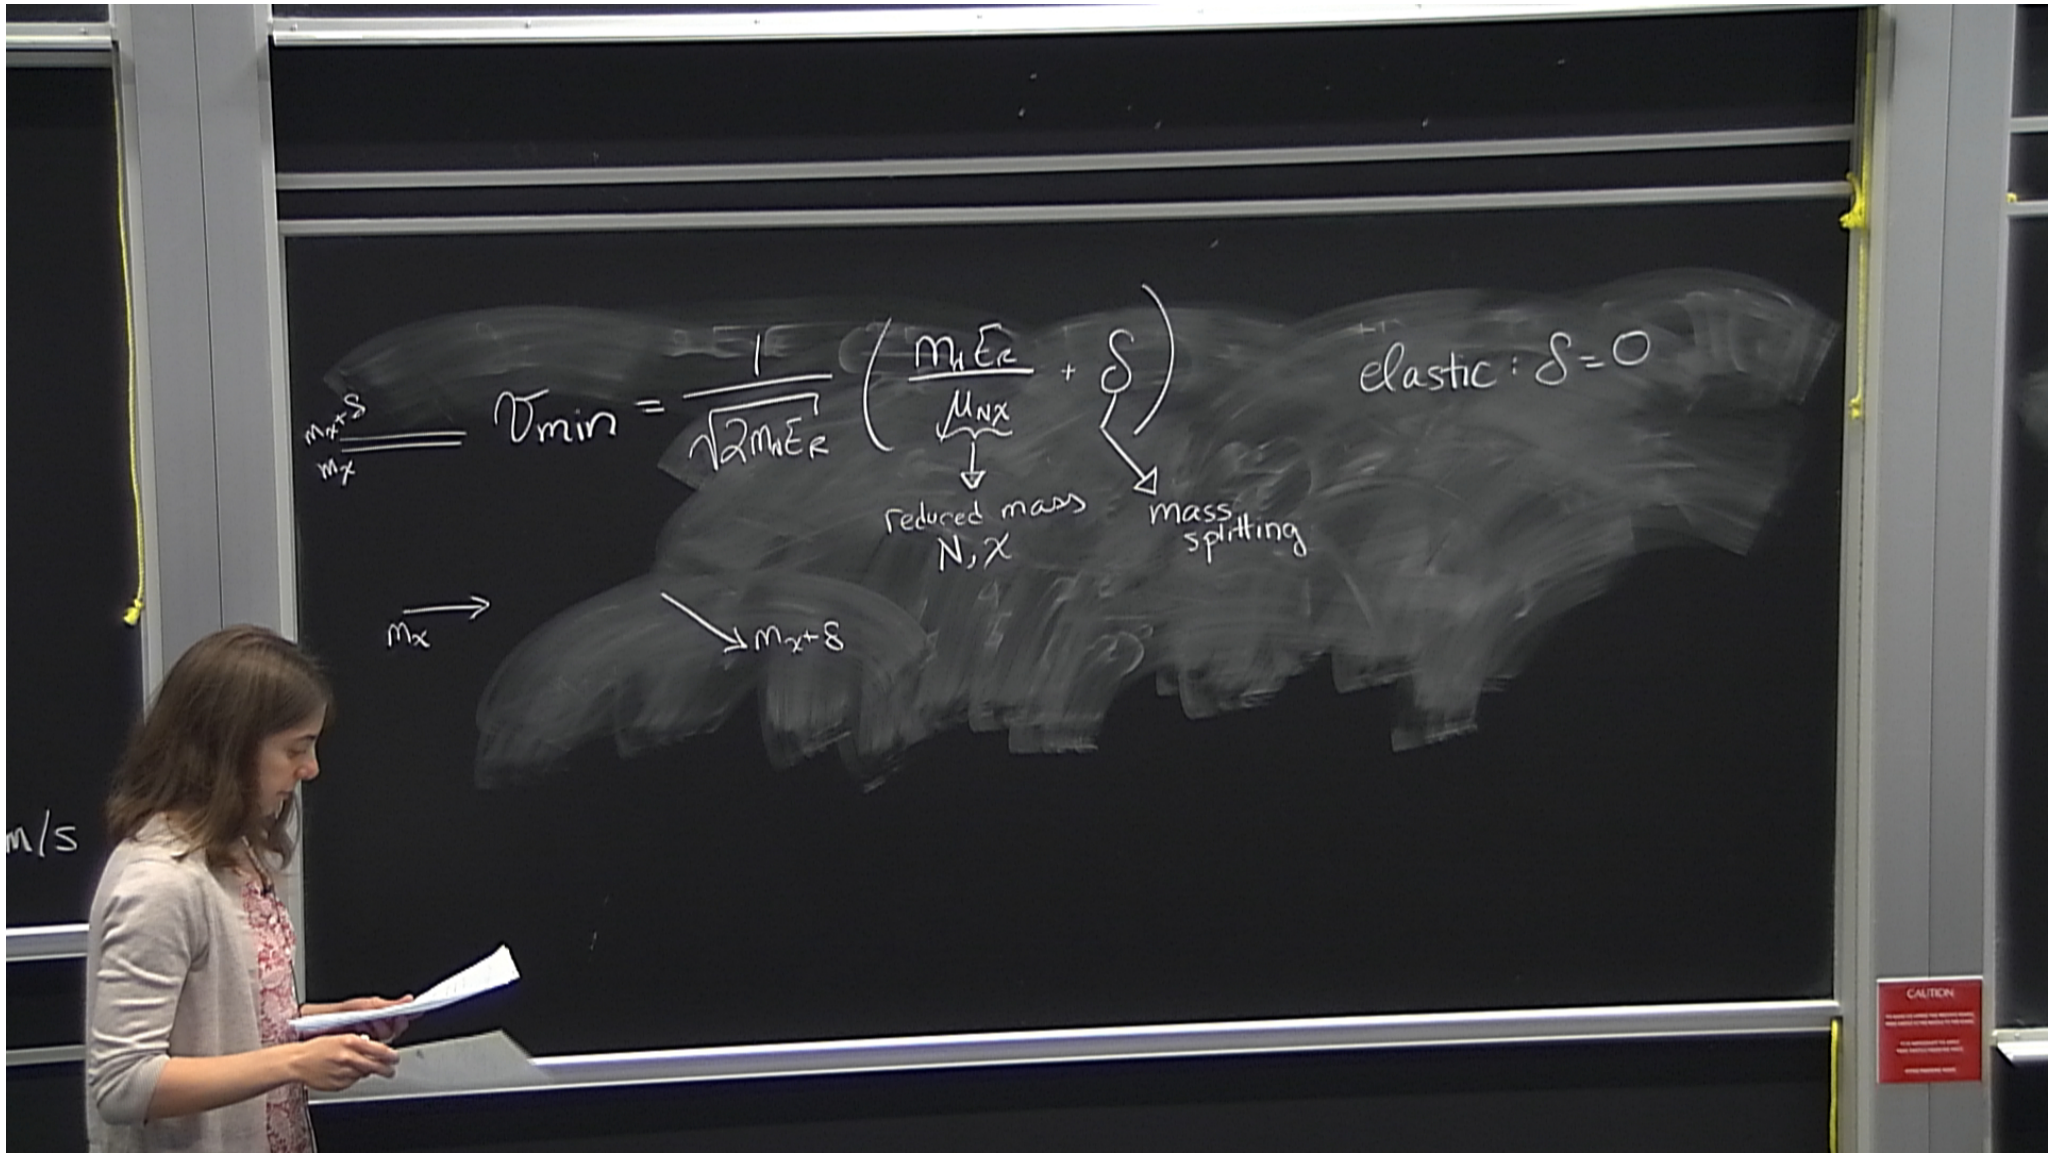 v_min = 1/√(2m_N E_R) ( m_N E_R / μ_Nχ + δ )
elastic : δ = 0
m_χ + δ
m_χ
reduced mass
N, χ
mass
splitting
m_χ →
↘ m_χ + δ
m/s
CAUTION